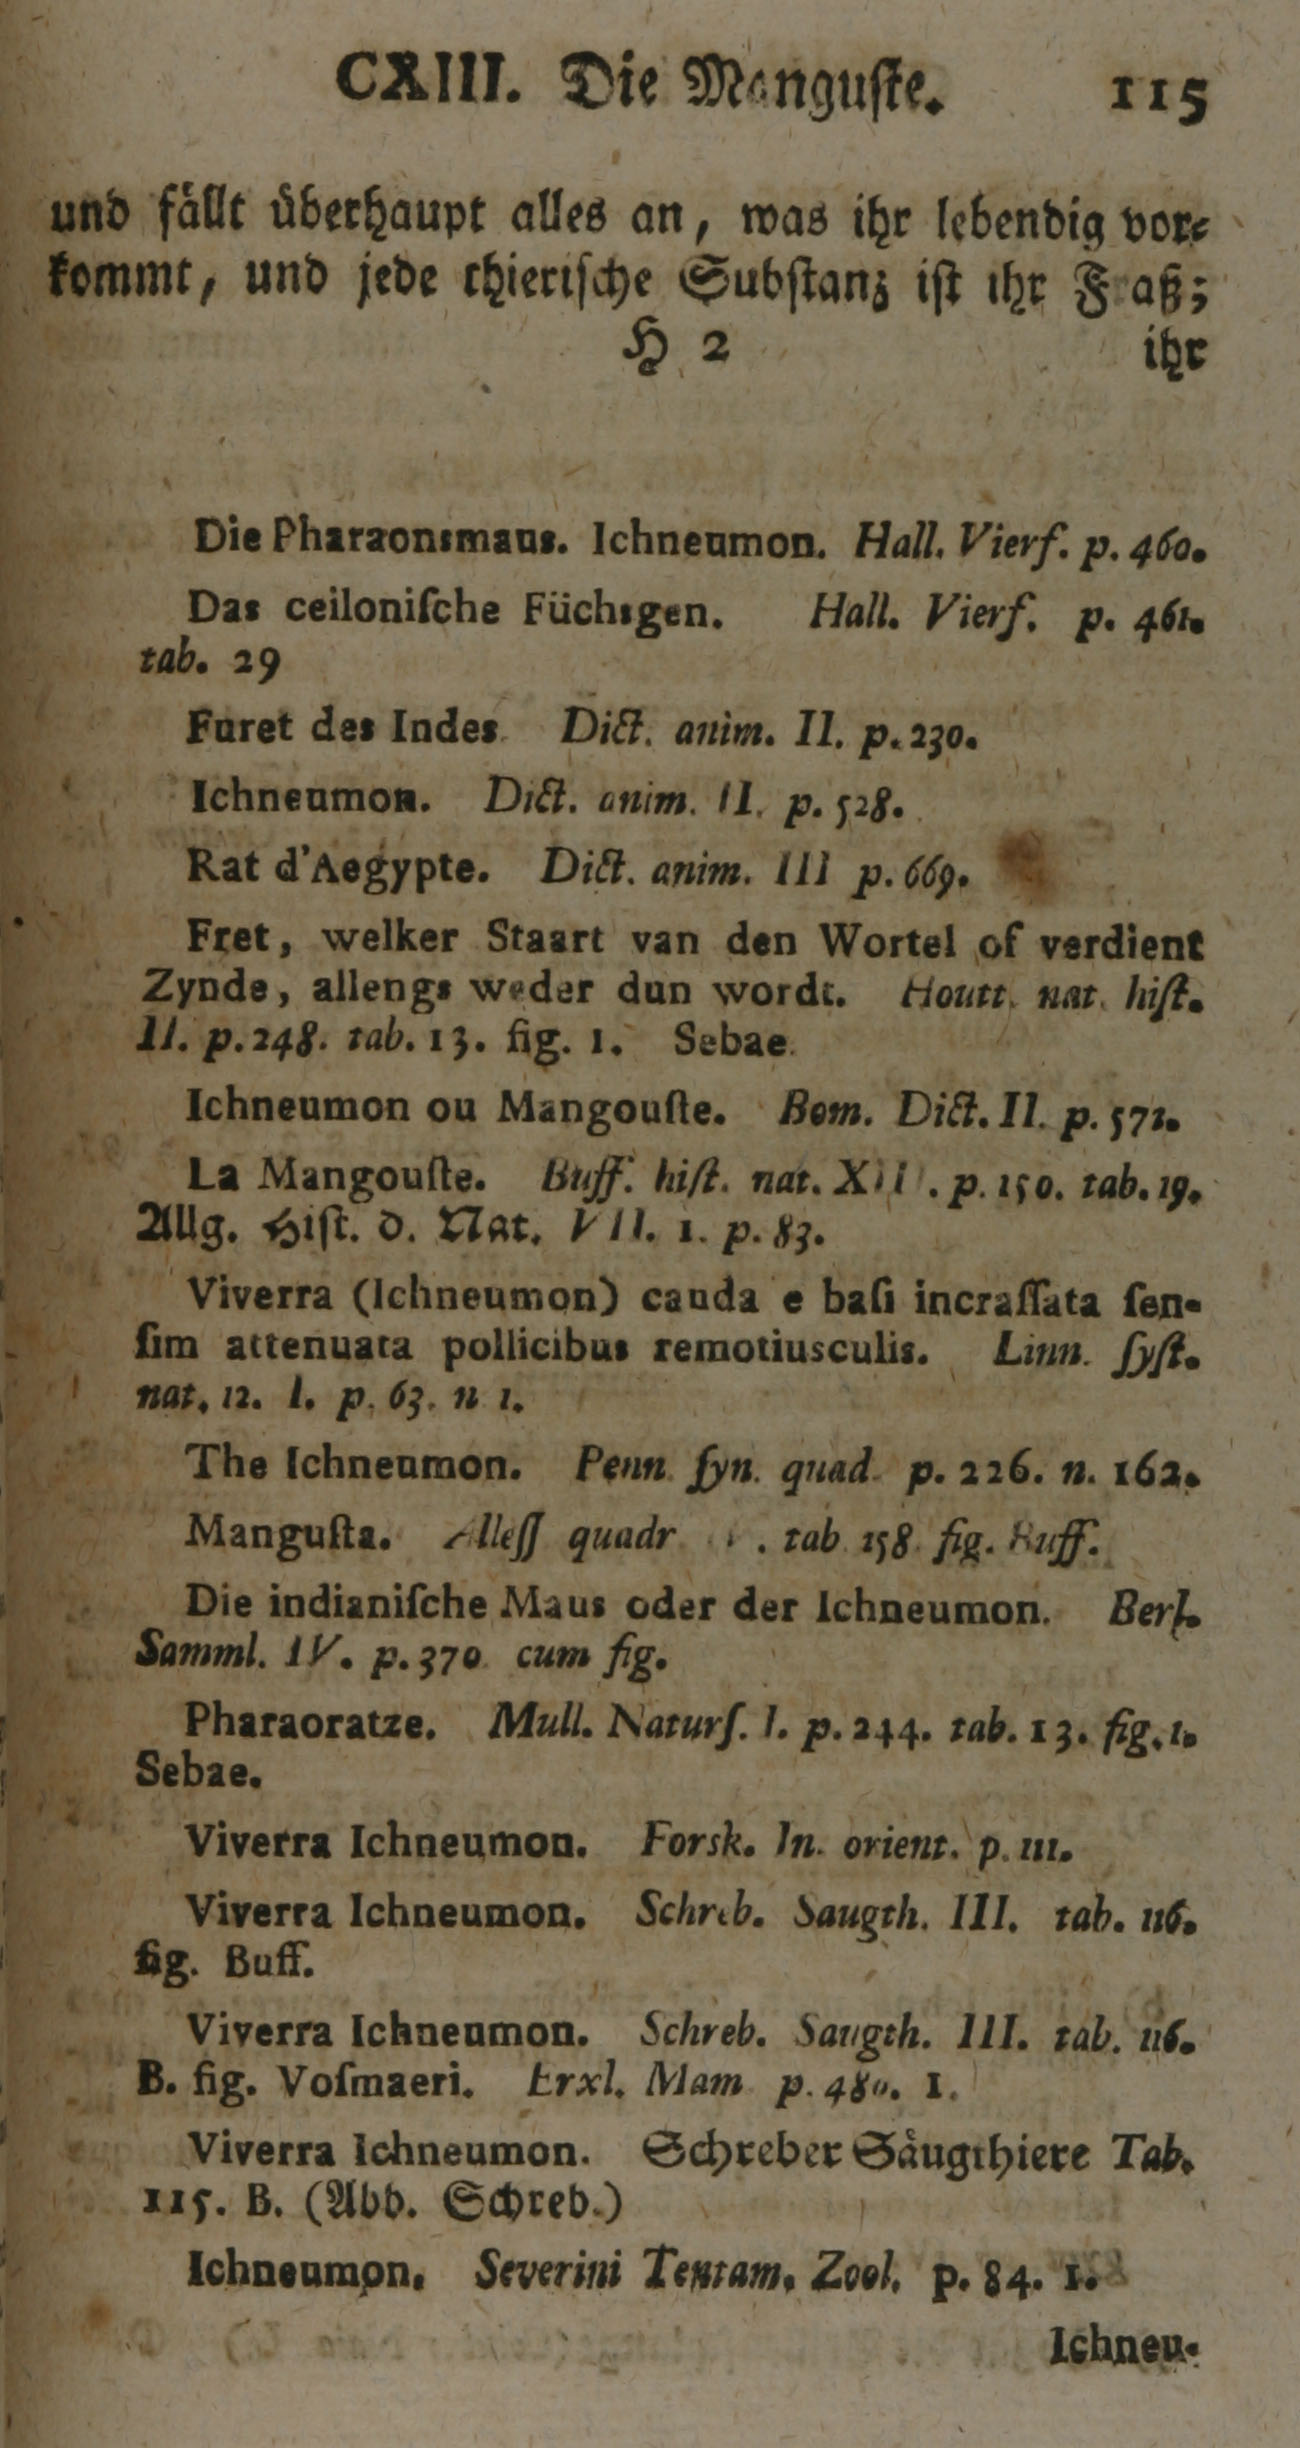 CXIII. Die Manguste. 115
und fällt überhaupt alles an, was ihr lebendig vor-
kommt, und jede thierische Substanz ist ihr Fraß;
H 2 ihr
Die Pharaonsmaus. Ichneumon. Hall. Vierf. p. 460.
Das ceiloniſche Füchsgen. Hall. Vierf. p. 461.
tab. 29
Furet des Indes. Dict. anim. II. p. 230.
Ichneumon. Dict. anim. II. p. 528.
Rat d'Aegypte. Dict. anim. III p. 669.
Fret, welker Staart van den Wortel of verdient
Zynde, allengs weder dun wordt. Houtt. nat. hiſt.
II. p. 248. tab. 13. fig. 1. Sebae.
Ichneumon ou Mangouſte. Bom. Dict. II. p. 571.
La Mangouſte. Buff. hiſt. nat. p. 150. tab. 19.
Allg. Hiſt. d. Nat. VII. 1. p. 83.
Viverra (Ichneumon) cauda e baſi incraſſata ſen-
ſim attenuata pollicibus remotiusculis. Linn. ſyſt.
nat. 12. I. p. 63. n 1.
The Ichneumon. Penn. ſyn. quad. p. 226. n. 162.
Manguſta. quadr. tab. 158. fig. Buff.
Die indianiſche Maus oder der Ichneumon. Berl.
Samml. IV. p. 370. cum fig.
Pharaoratze. Mull. Naturſ. I. p. 244. tab. 13. fig. 1.
Sebae.
Viverra Ichneumon. Forsk. In. orient. p. III.
Viverra Ichneumon. Schreb. Saugth. III. tab. 116.
fig. Buff.
Viverra Ichneumon. Schreb. Saugth. III. tab. 116.
B. fig. Voſmaeri. Erxl. Mam. p. 480. 1.
Viverra Ichneumon. Schreber Säugthiere Tab.
115. B. (Abb. Schreb.)
Ichneumon. Severini Tentam. Zool. p. 84. 1.
Ichneu-